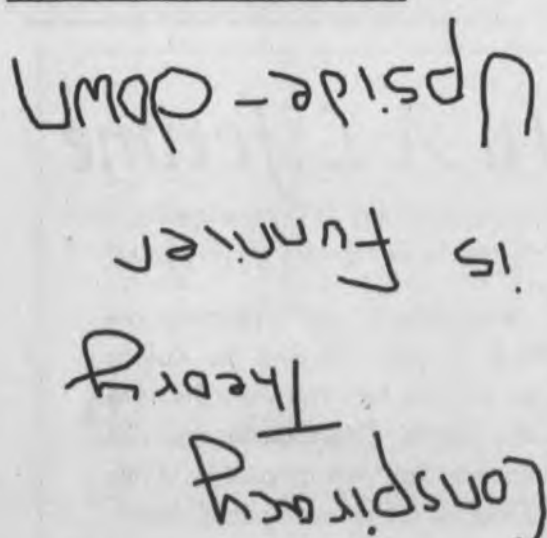 Conspiracy
Theory
is funnier
Upside-down